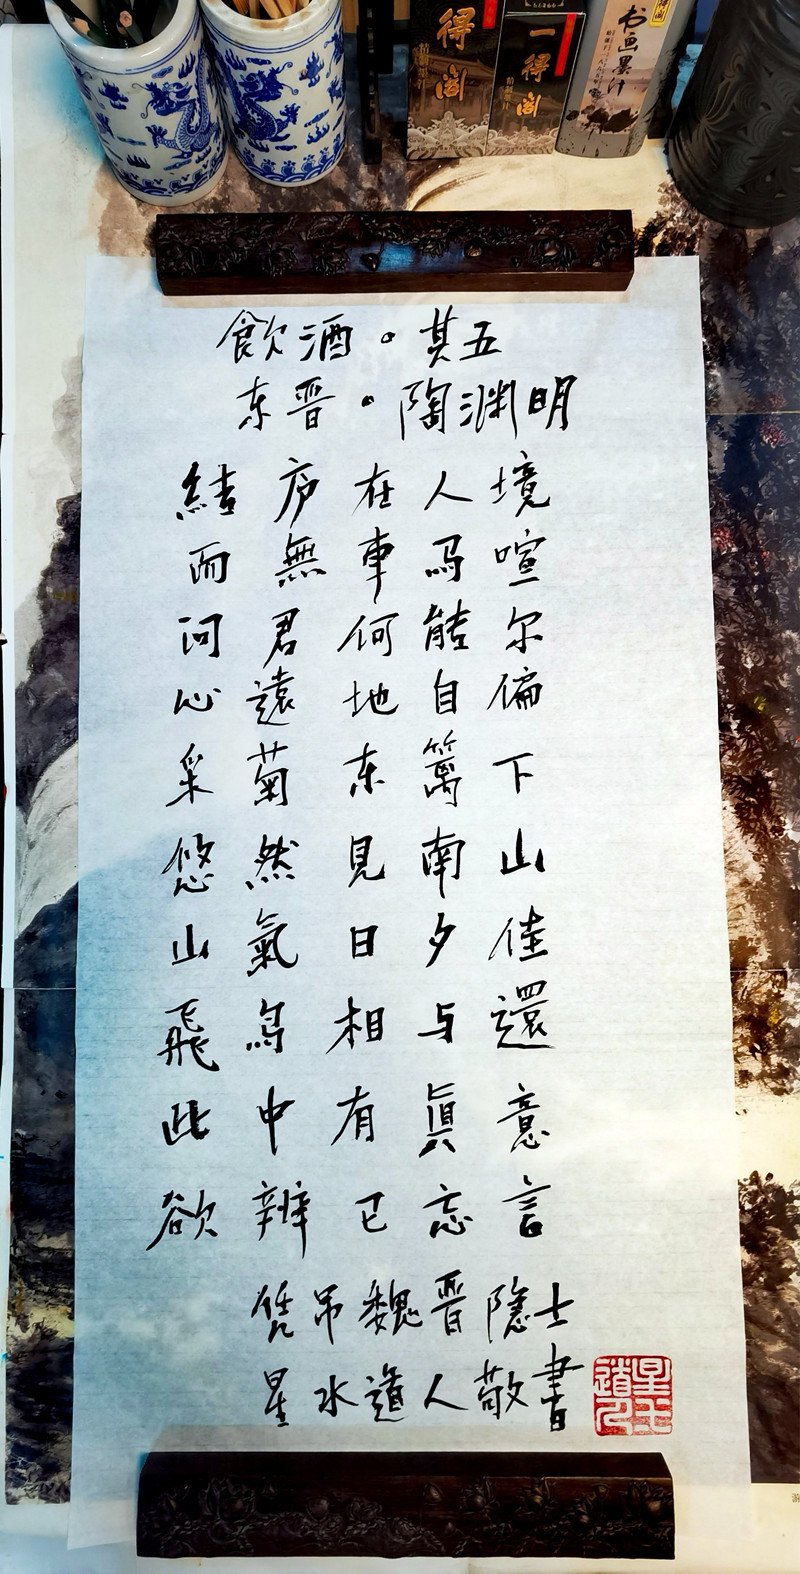 得阁
精制墨汁
一得阁
精制墨汁
书画墨汁
飲酒。其五
东晋。陶渊明
結庐在人境
而無車马喧
问君何能尔
心遠地自偏
采菊东篱下
悠然見南山
山氣日夕佳
飛鸟相与還
此中有眞意
欲辨已忘言
凭吊魏晋隱士
星水道人敬書
星水道人